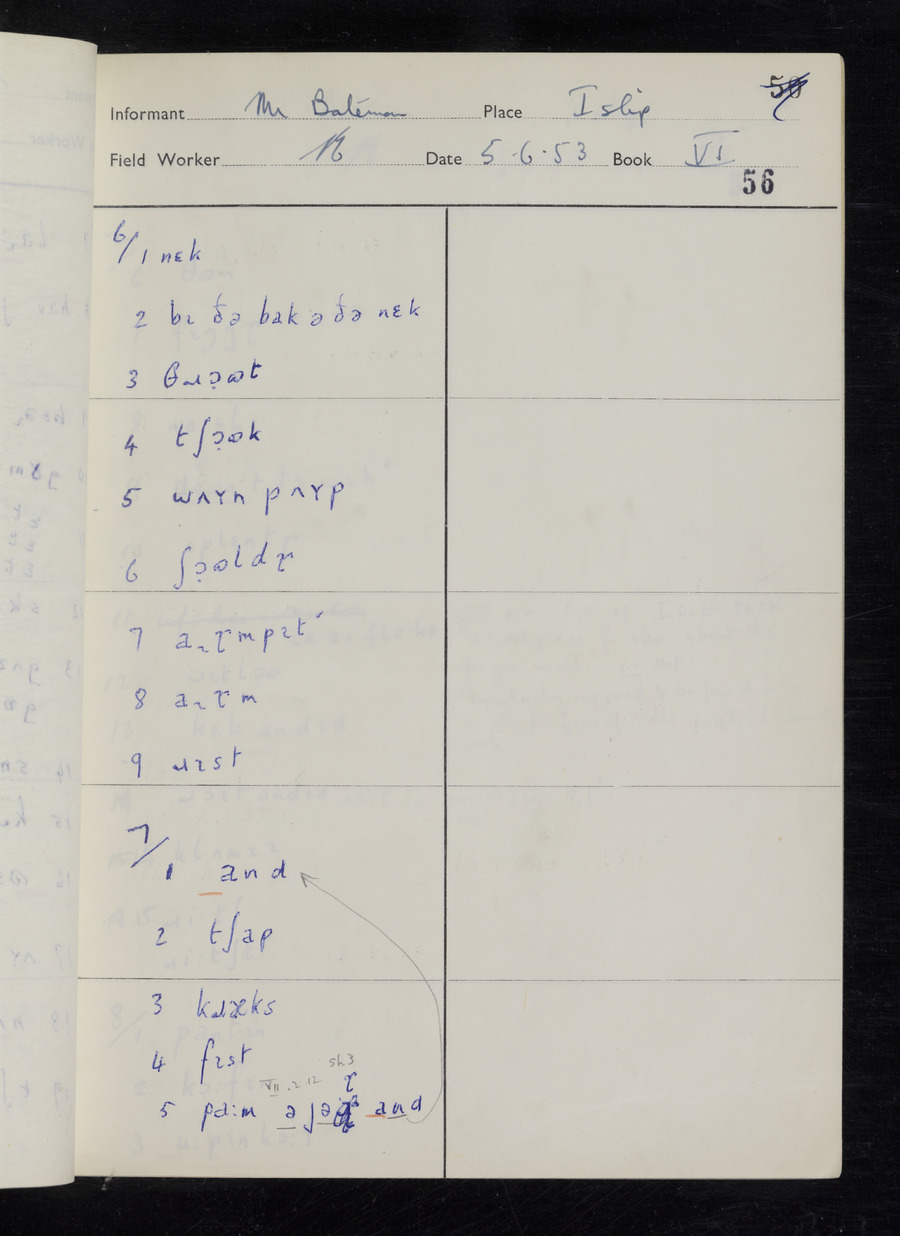 Informant Mr Bateman Place Islip
Field Worker Date 5.6.53 Book VI
56
6/1 nɛk
2 bɪ ðə bak ə ðə nɛk
3 θɹɔ̣ɷt
4 tʃɔ̣ɷk
5 wʌɤn pʌɤp
6 ʃɔ̣ɷldɚ
7 aɚmpɪt
8 aɚm
9 ɹɪst
7/1 and
2 tʃap
3 kɹæks
4 fɪst
5 pɑ:m ə jə and
VII.2.12 sh3